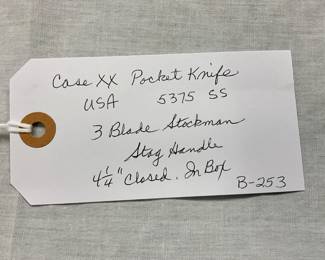 Case XX Pocket Knife
USA 5375 SS
3 Blade Stockman
Stag Handle
4 1/4" Closed. In Box
B-253